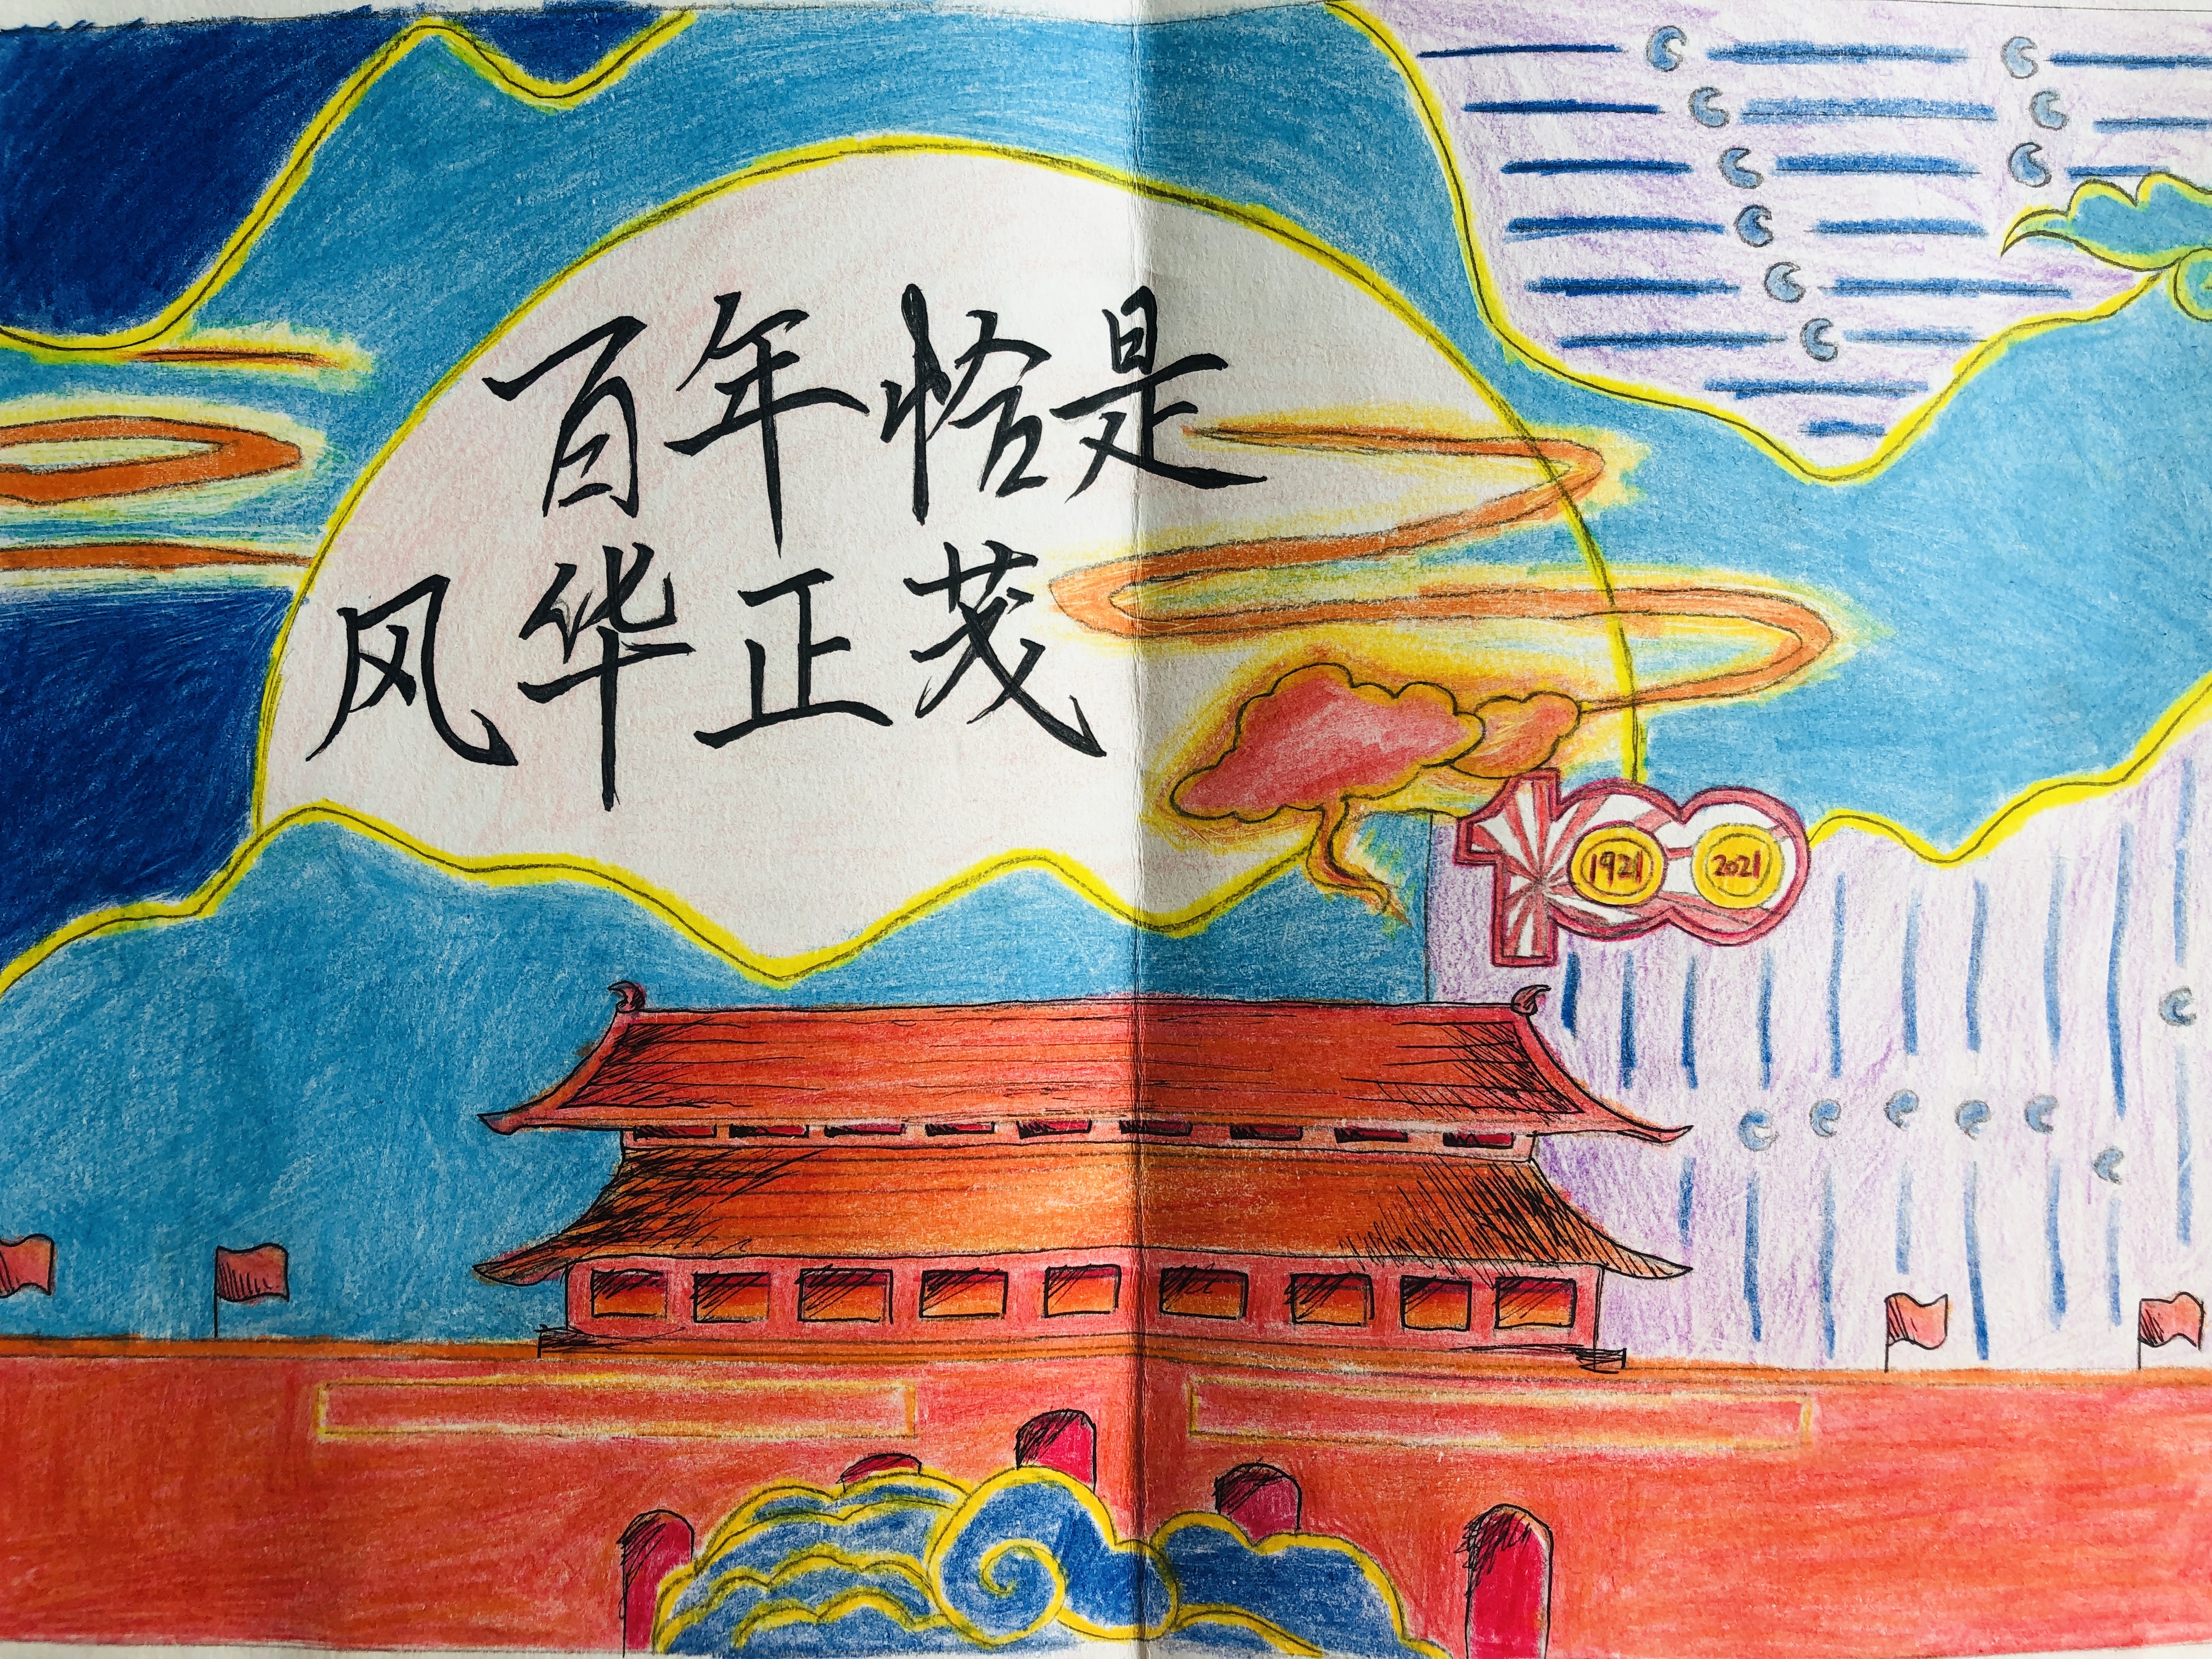 百年恰是
风华正茂
100
1921 2021